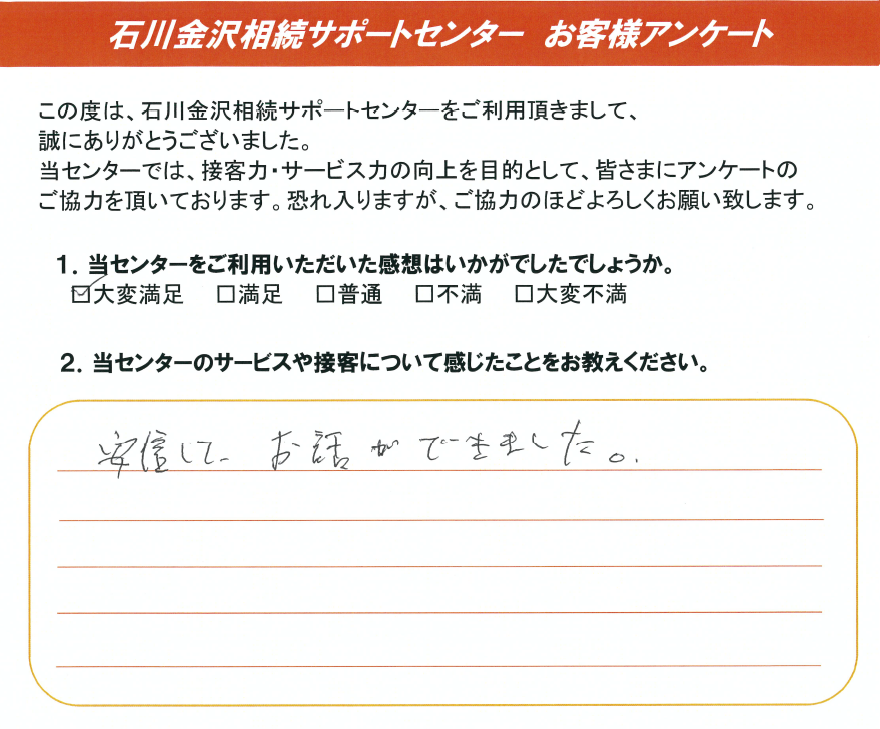 石川金沢相続サポートセンター お客様アンケート
この度は、石川金沢相続サポートセンターをご利用頂きまして、
誠にありがとうございました。
当センターでは、接客力・サービス力の向上を目的として、皆さまにアンケートの
ご協力を頂いております。恐れ入りますが、ご協力のほどよろしくお願い致します。
1. 当センターをご利用いただいた感想はいかがでしたでしょうか。
☑大変満足 □満足 □普通 □不満 □大変不満
2. 当センターのサービスや接客について感じたことをお教えください。
安信して、お話ができました。